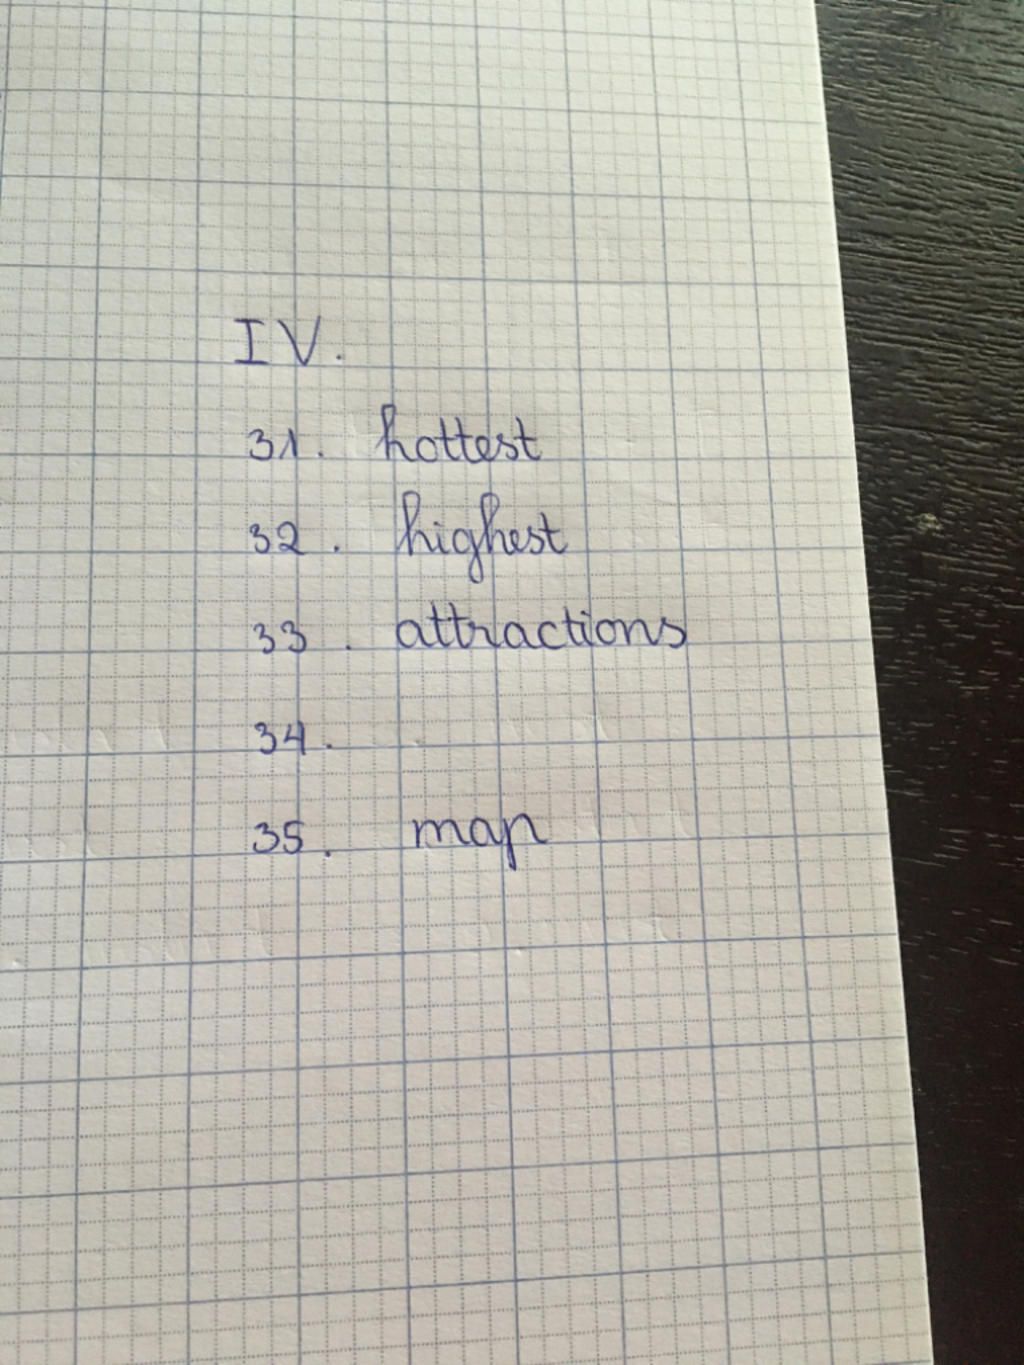 IV.
31. hottest
32. highest
33. attractions
34.
35. map